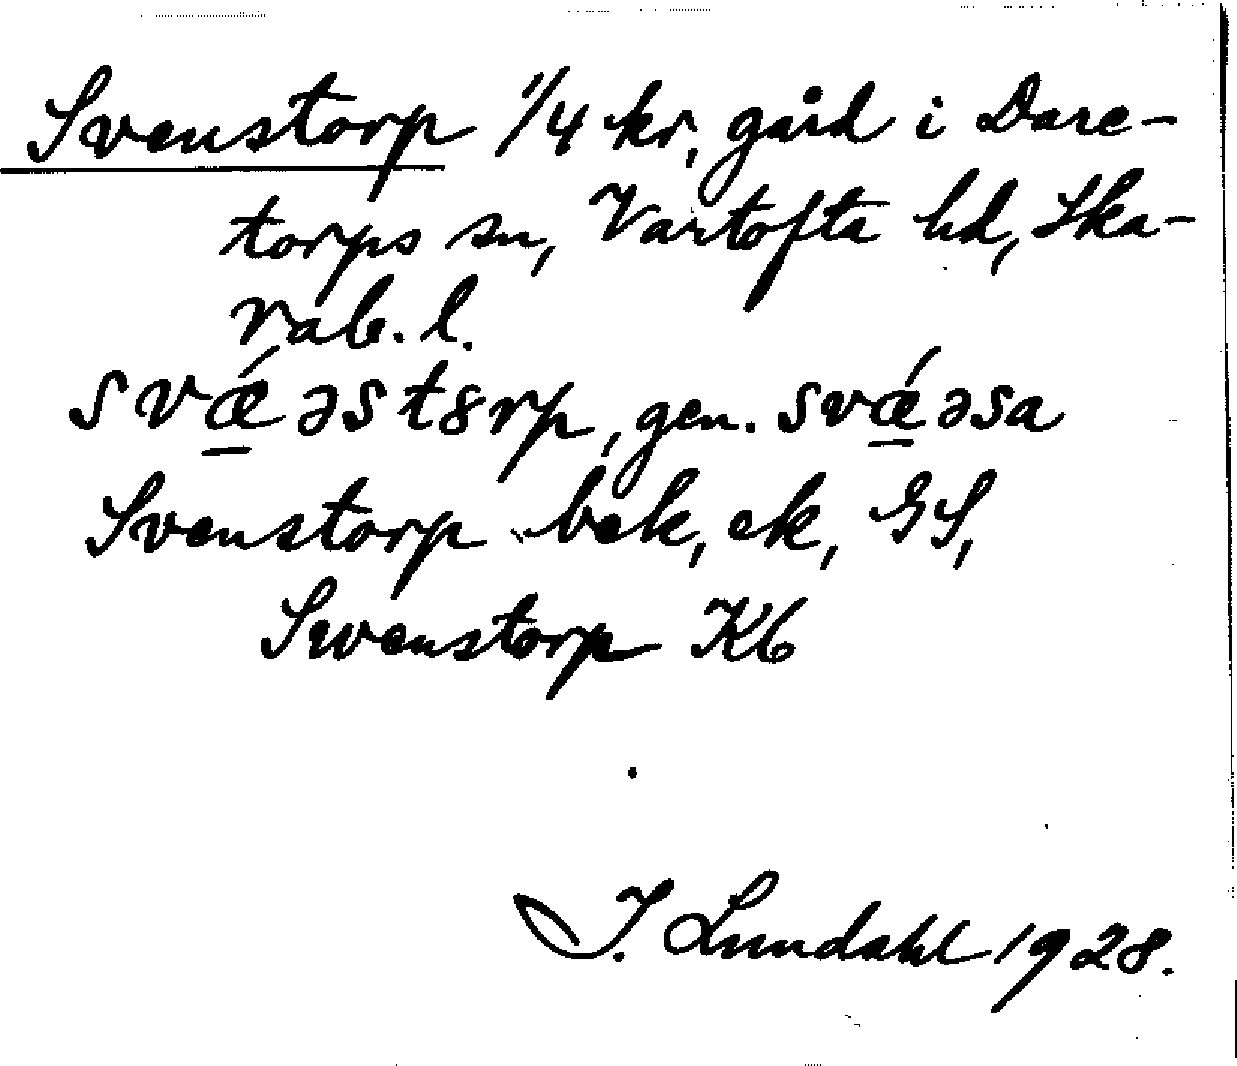 Svenstorp 1/4 kr, gård i Dare-
torps sn, Vartofta hd, Ska-
rab. l.
svǽəstȣrp, gen. svǽəsa
Svenstorp bek, ek, GS,
Swenstorp Kb
I. Lundahl 1928.